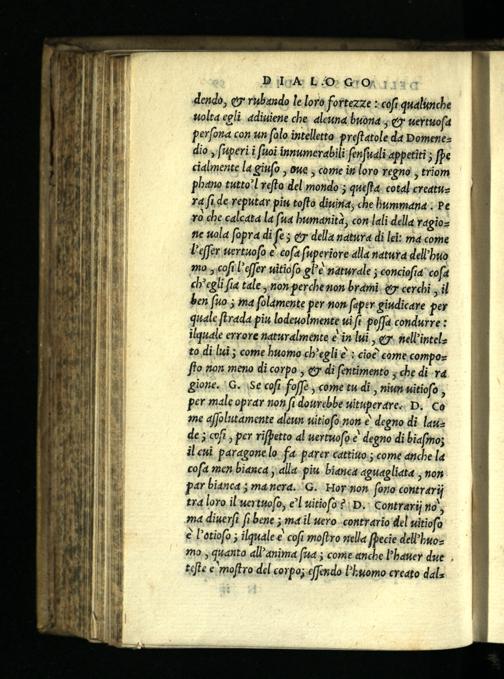 DIALOGO
dendo, & rubando le loro fortezze: cosi qualunche
uolta egli adiuiene che alcuna buona, & uertuosa
persona con un solo intelletto prestatole da Domene-
dio, superi i suoi innumerabili sensuali appetiti; spe
cialmente la giuso, oue, come in loro regno, triom
phano tutto'l resto del mondo; questa cotal creatu-
ra si de reputar piu tosto diuina, che hummana. Pe
rò che calcata la sua humanità, con lali della ragio-
ne uola sopra di se; & della natura di lei: ma come
l'esser uertuoso è cosa superiore alla natura dell'huo
mo, cosi l'esser uitioso gl'è naturale; conciosia cosa
ch'egli sia tale, non perche non brami & cerchi, il
ben suo; ma solamente per non saper giudicare per
quale strada piu lodeuolmente ui si possa condurre:
ilquale errore naturalmente è in lui, & nell'intel-
to di lui; come huomo ch'egli è: cioè come compo-
sto non meno di corpo, & di sentimento, che di ra
gione. G. Se cosi fosse, come tu di, niun uitioso,
per male oprar non si dourebbe uituperare. D. Co
me assolutamente alcun uitioso non è degno di lau-
de; cosi, per rispetto al uertuoso è degno di biasmo;
il cui paragone lo fa parer cattiuo; come anche la
cosa men bianca, alla piu bianca aguagliata, non
par bianca; ma nera. G. Hor non sono contrarij
tra loro il uertuoso, e'l uitioso? D. Contrarij nò,
ma diuersi si bene; ma il uero contrario del uitioso
è l'otioso; ilquale è cosi mostro nella specie dell'huo-
mo, quanto all'anima sua; come anche l'hauer due
teste è mostro del corpo; essendo l'huomo creato dal-